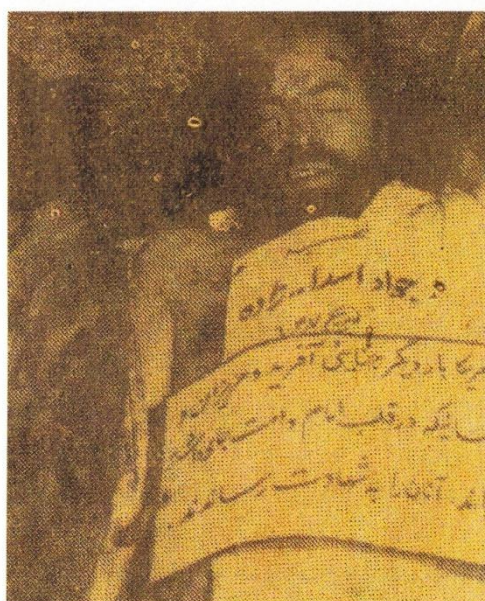 جواد اسدالله‌زاده
بار دیگر جنایتی آفرید و عزیزانی
در قلب امام و امت جای
اند. آنان را به شهادت رساندند.